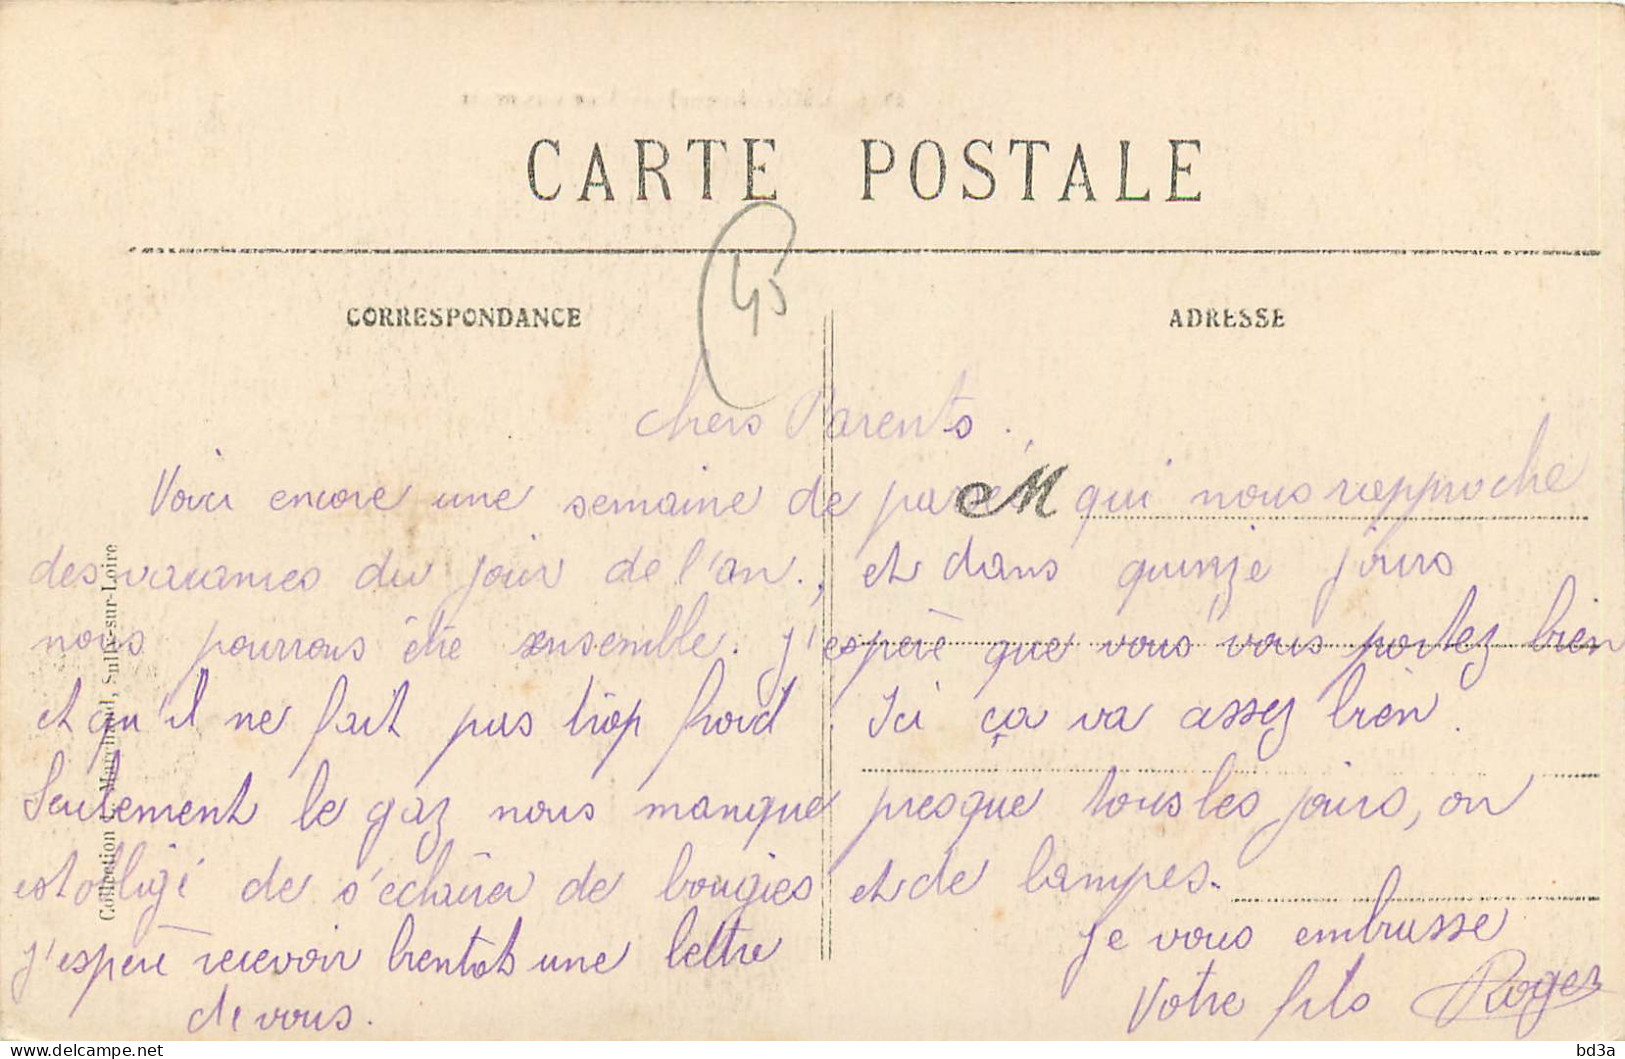 CARTE POSTALE
CORRESPONDANCE
45
ADRESSE
chers Parents.
Voici encore une semaine de passé M qui nous rapproche
des vacances du jour de l'an., et dans quinze jours
nous pourrons être ensemble. J'espère que vous vous portez bien
et qu'il ne fait pas trop froid. Ici ça va assez bien.
Seulement le gaz nous manque presque tous les jours, on
est obligé de s'éclairer de bougies et de lampes.
J'espère recevoir bientot une lettre
de vous.
Je vous embrasse
Votre fils Roger
Collection L. Marchand, Sully-sur-Loire
bd3a
www.delcampe.net